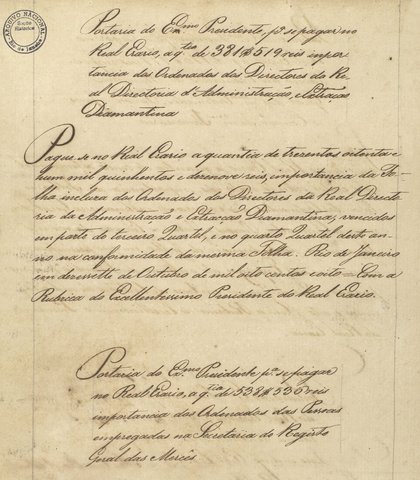 ARQUIVO NACIONAL
Portaria do Exmo Presidente, pa se pagar no
Real Erario, a qtia de 381$519 reis impor
tancia dos Ordenados dos Directores da Re
al Directoria d'Administração, e Extração
Diamantina
Pague-se no Real Erario a quantia de trezentos oitenta e
hum mil quinhentos e dezenove reis, importancia da Fo-
lha incluza dos Ordenados dos Directores da Real Directo
ria da Administração e Extracção Diamantina, vencidos
em parte do terceiro Quartel, e no quarto Quartel deste an-
no na conformidade da mesma Folha. Rio de Janeiro
em dezessette de Outubro de mil oito centos e oito = Com a
Rubrica do Excellentissimo Presidente do Real Erario.
Portaria do Exmo Presidente pa se pagar
no Real Erario, a qtia de 538$535 reis
importancia dos Ordenados das Pessoas
empregadas na Secretaria do Registo
Geral das Mercês